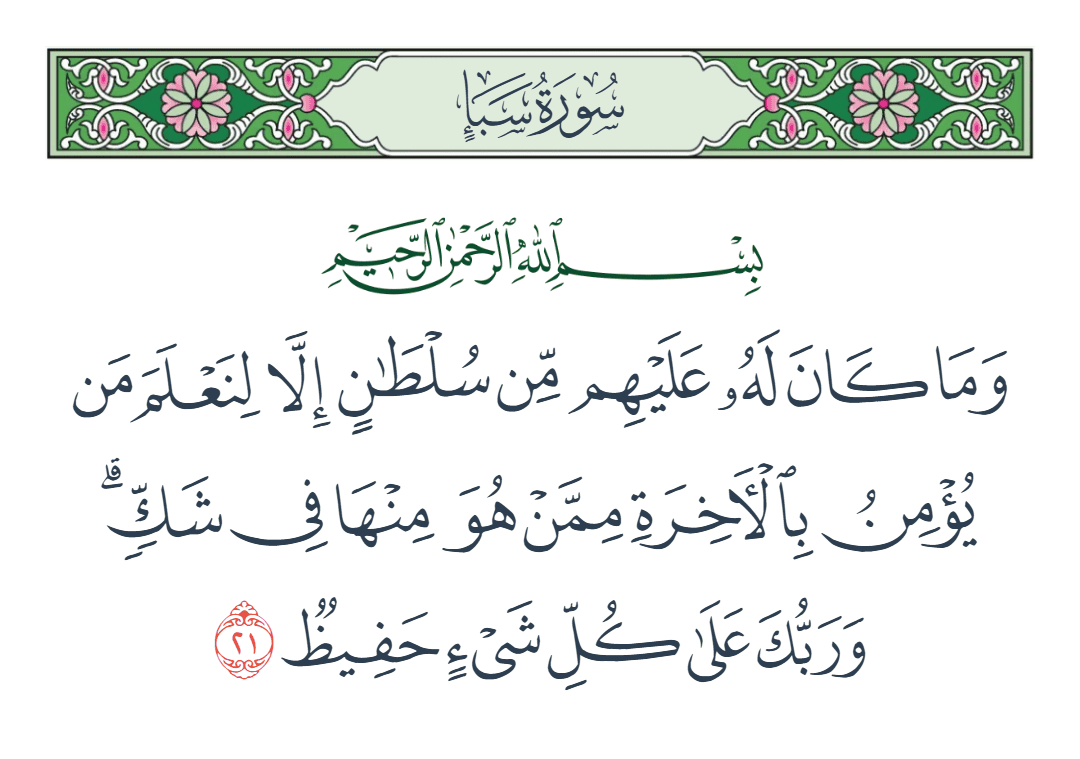 سُورَةُ سَبَإٍ
بِسْمِ ٱللَّهِ ٱلرَّحْمَٰنِ ٱلرَّحِيمِ
وَمَا كَانَ لَهُۥ عَلَيْهِم مِّن سُلْطَٰنٍ إِلَّا لِنَعْلَمَ مَن
يُؤْمِنُ بِٱلْـَٔاخِرَةِ مِمَّنْ هُوَ مِنْهَا فِى شَكٍّۢ ۗ
وَرَبُّكَ عَلَىٰ كُلِّ شَىْءٍ حَفِيظٌۭ ٢١